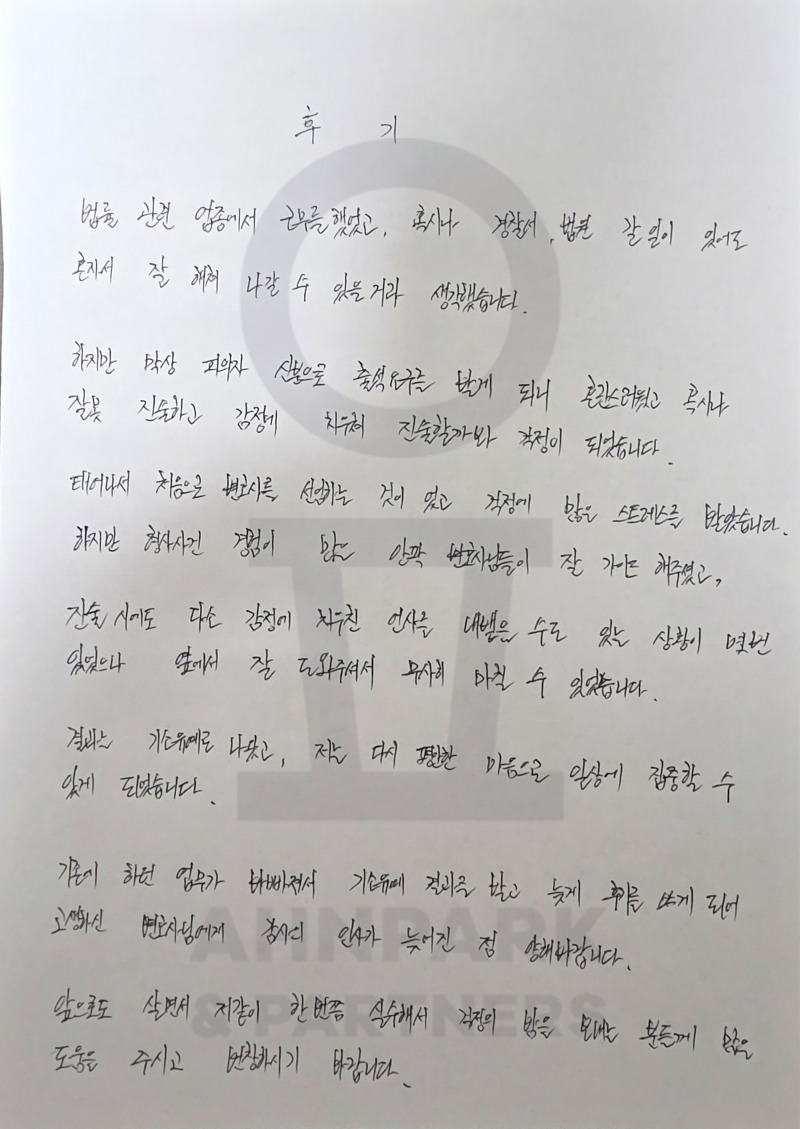 후 기
법률 관련 업종에서 근무를 했었고, 혹시나 경찰서, 법원 갈 일이 있어도
혼자서 잘 해쳐 나갈 수 있을거라 생각했습니다.
하지만 막상 피의자 신분으로 출석요구를 받게 되니 혼란스러웠고 혹시나
잘못 진술하고 감정에 치우쳐 진술할까봐 걱정이 되었습니다.
태어나서 처음으로 변호사를 선임하는 것이 었고 걱정에 많은 스트레스를 받았습니다.
하지만 형사사건 경험이 많은 안팍 변호사님들이 잘 가이드 해주셨고,
진술 시에도 다소 감정에 치우친 언사를 내뱉을 수도 있는 상황이 몇번
있었으나 옆에서 잘 도와주셔서 무사히 마칠 수 있었습니다.
결과는 기소유예로 나왔고, 저는 다시 평안한 마음으로 일상에 집중할 수
있게 되었습니다.
기존에 하던 업무가 바빠져서 기소유예 결과를 받고 늦게 후기를 쓰게 되어
고생하신 변호사님에게 감사의 인사가 늦어진 점 양해바랍니다.
AHNPARK
& PARTNERS
앞으로도 살면서 저같이 한번쯤 실수해서 걱정의 밤을 보내는 분들께 많은
도움을 주시고 번창하시기 바랍니다.